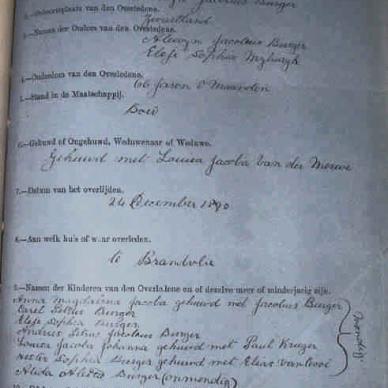 Jacobus Burger
2.—Geboorteplaats van den Overledene.
Zwartland
3.—Namen der Ouders van den Overledene.
Alewyn Jacobus Burger
Elsje Sophia Myburgh
4.—Ouderdom van den Overledene.
66 Jaren 8 Maanden
5.—Stand in de Maatschappij.
Boer
6.—Gehuwd of Ongehuwd, Weduwenaar of Weduwe.
Gehuwd met Louisa Jacoba Van der Merwe
7.—Datum van het overlijden.
24 December 1890
8.—Aan welk huis of waar overleden.
te Brandvlei
9.—Namen der Kinderen van den Overledene en of dezelve meer of minderjarig zijn.
Anna Magdalena Jacoba gehuwd met Jacobus Burger
Carel Burger
Elsje Sophia Burger
Andries Jacobus Burger
Louisa Jacoba Johanna gehuwd met Paul Kruger
Hester Sophia Burger gehuwd met Elias
Alida Aletta Burger (onmondig)
Mondig